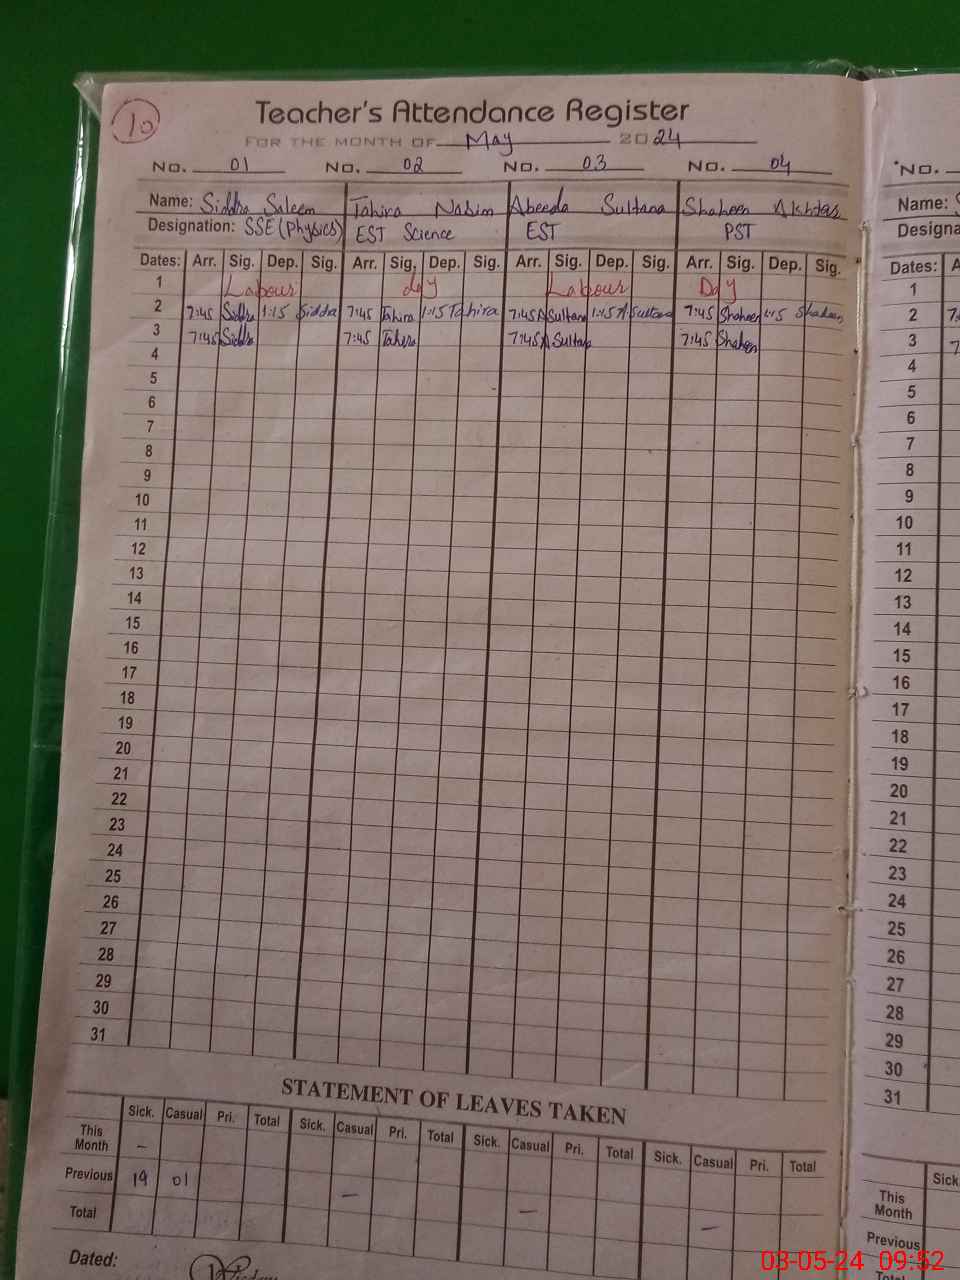 10
Teacher's Attendance Register
FOR THE MONTH OF May 2024
No. 01 No. 02 No. 03 No. 04
Name: Siddra Saleem Tahira Nasim Abeeda Sultana Shaheen Akhtar
Designation: SSE (Physics) EST Science EST PST
Dates: Arr. Sig. Dep. Sig. Arr. Sig. Dep. Sig. Arr. Sig. Dep. Sig. Arr. Sig. Dep. Sig.
1 Labour day Labour Day
2 7:45 Siddra 1:15 Siddra 7:45 Tahira 1:15 Tahira 7:45 A Sultana 1:15 A Sultana 7:45 Shaheen 1:15 Shaheen
3 7:45 Siddra 7:45 Tahira 7:45 A Sultana 7:45 Shaheen
4
5
6
7
8
9
10
11
12
13
14
15
16
17
18
19
20
21
22
23
24
25
26
27
28
29
30
31
STATEMENT OF LEAVES TAKEN
Sick. Casual Pri. Total Sick. Casual Pri. Total Sick. Casual Pri. Total Sick. Casual Pri. Total
This Month –
Previous 19 01 –
Total – –
Dated:
No.
Name:
Designa
Dates:
1
2
3
4
5
6
7
8
9
10
11
12
13
14
15
16
17
18
19
20
21
22
23
24
25
26
27
28
29
30
31
Sick
This Month
Previous
03-05-24 09:52